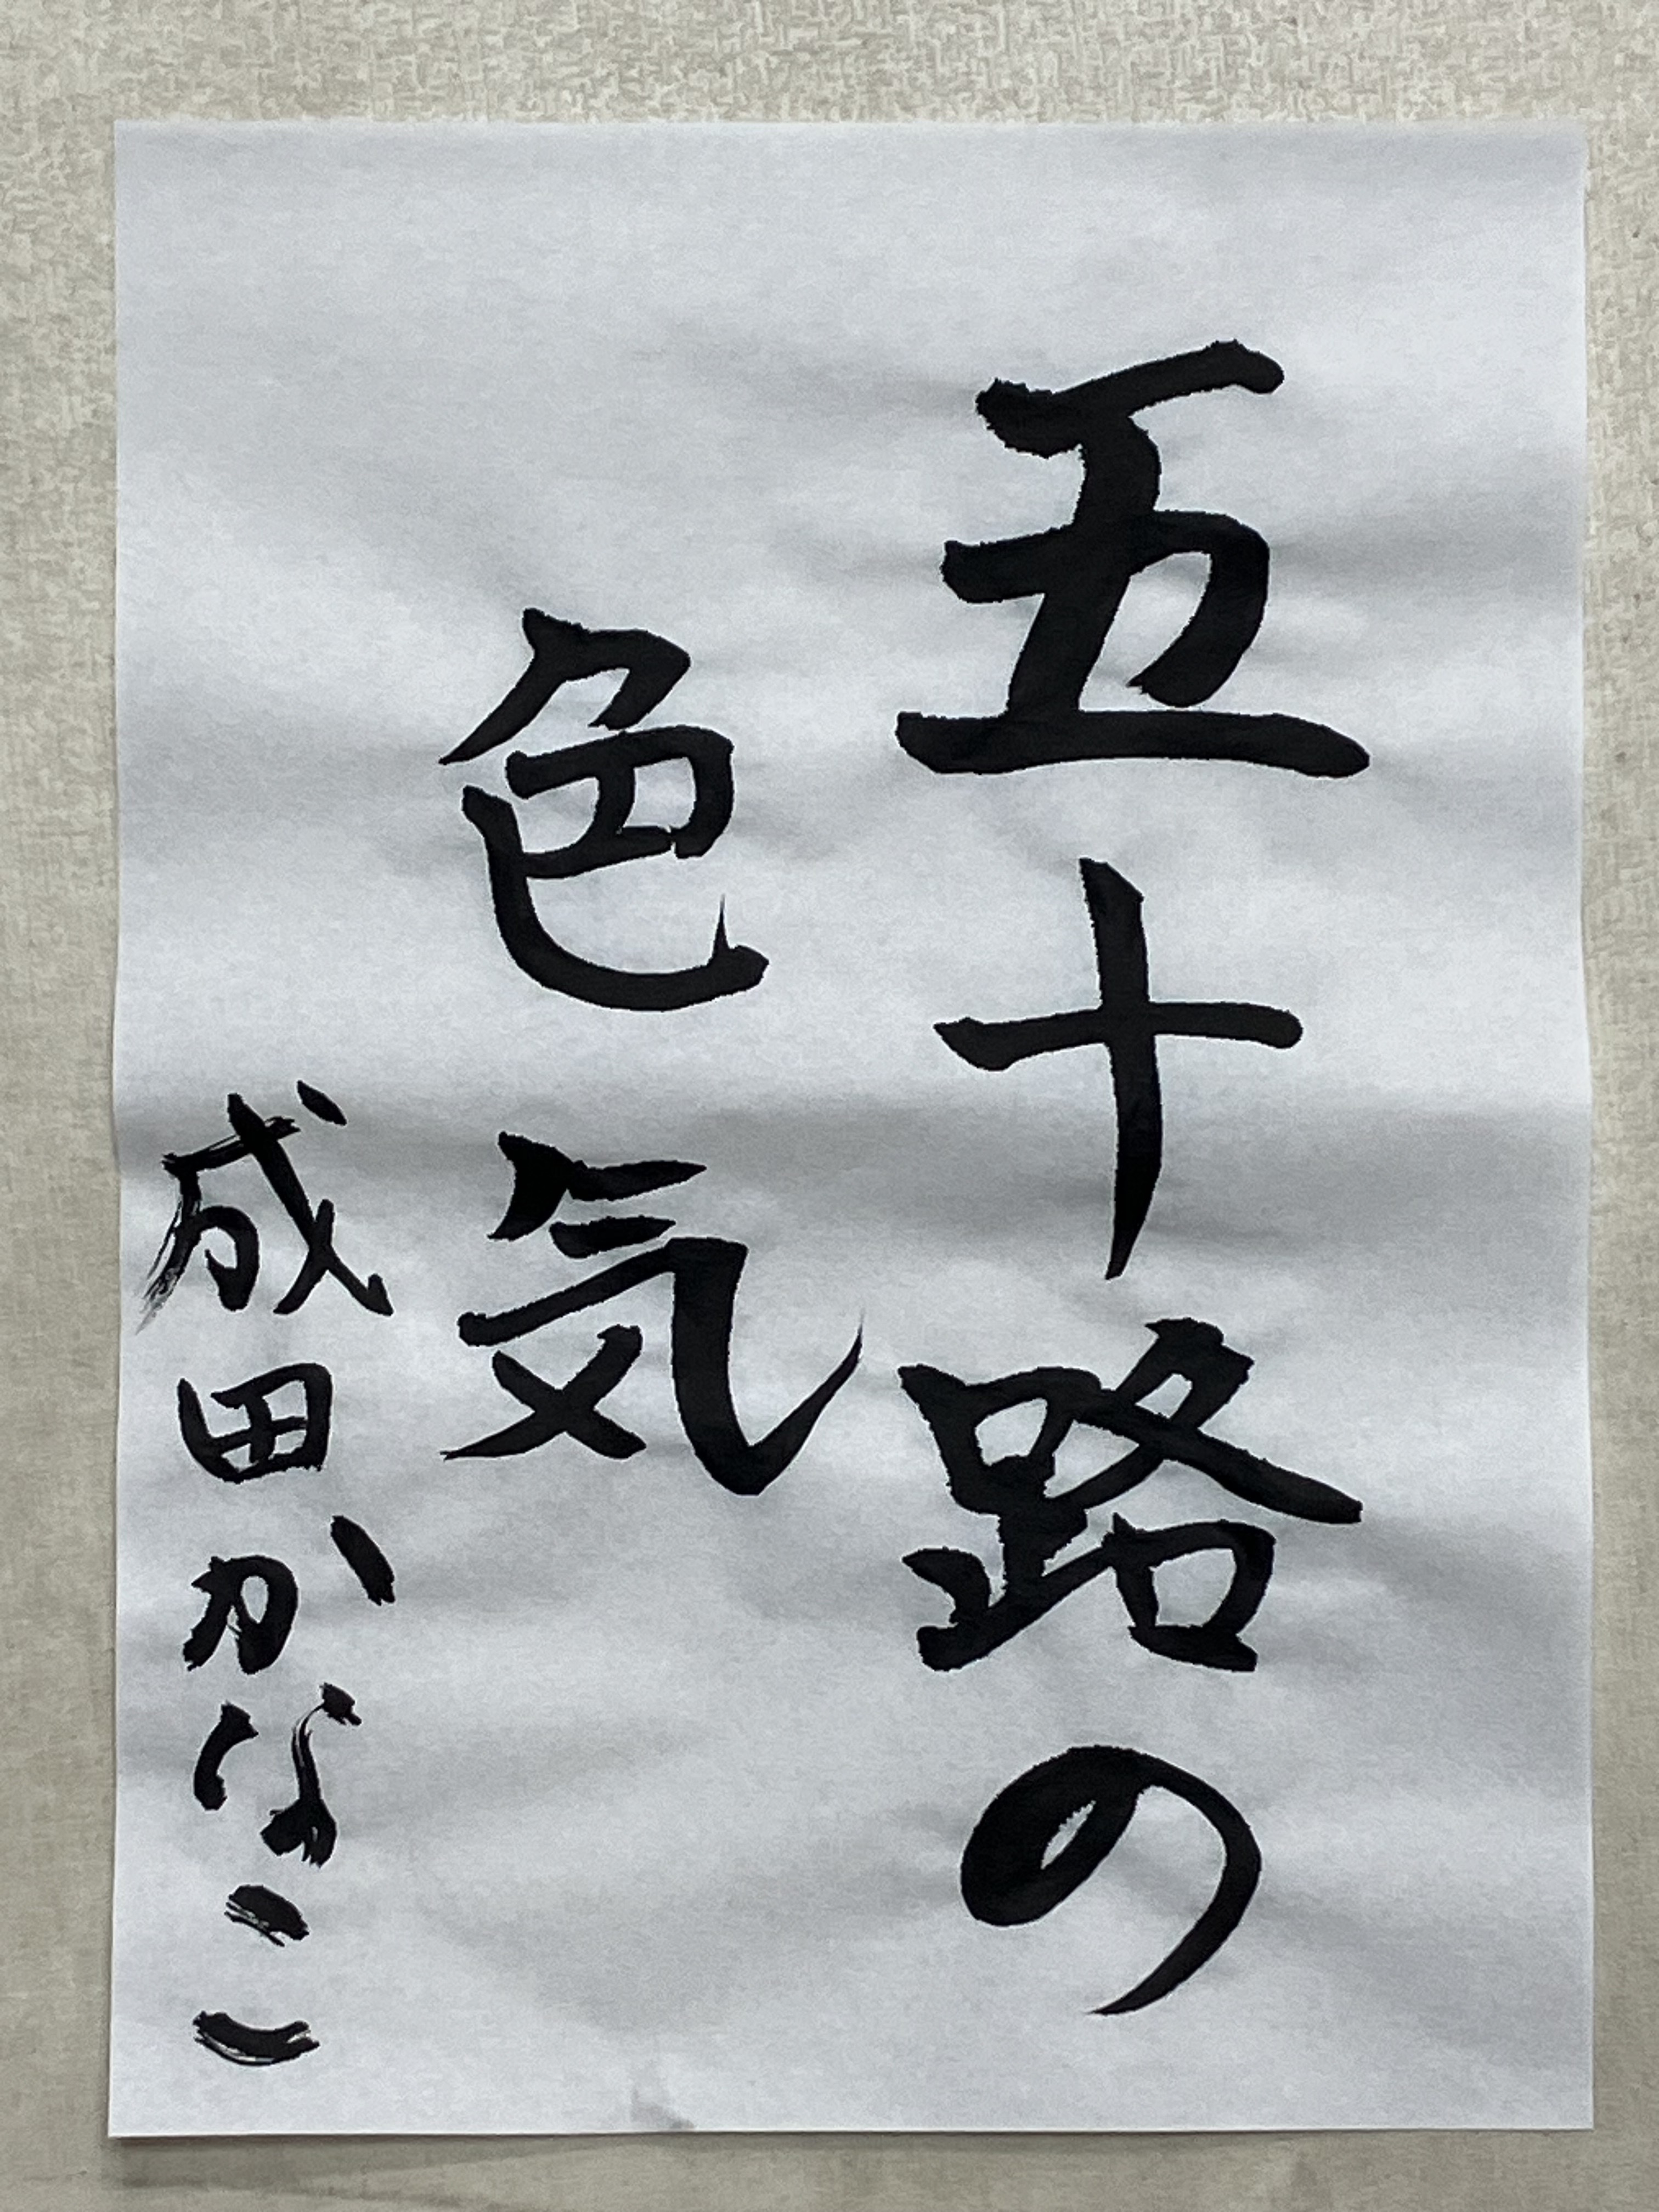 五十路の
色気
成田かなこ